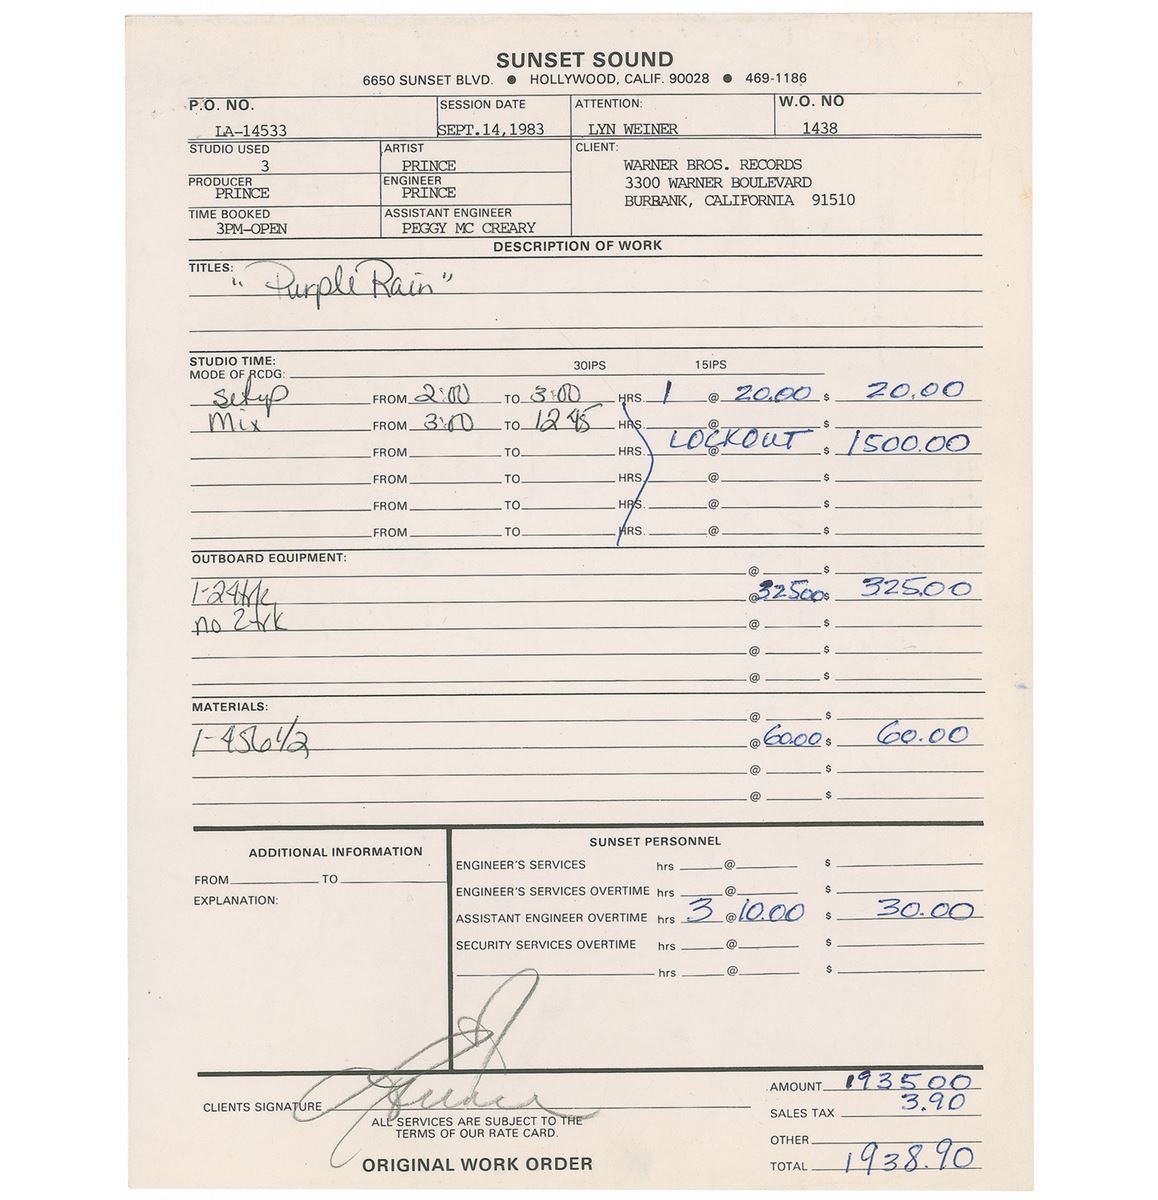 SUNSET SOUND
6650 SUNSET BLVD. ● HOLLYWOOD, CALIF. 90028 ● 469-1186
P.O. NO. SESSION DATE ATTENTION: W.O. NO
LA-14533 SEPT.14,1983 LYN WEINER 1438
STUDIO USED ARTIST CLIENT:
3 PRINCE WARNER BROS. RECORDS
PRODUCER ENGINEER 3300 WARNER BOULEVARD
PRINCE PRINCE BURBANK, CALIFORNIA 91510
TIME BOOKED ASSISTANT ENGINEER
3PM-OPEN PEGGY MC CREARY
DESCRIPTION OF WORK
TITLES: "Purple Rain"
STUDIO TIME: 30IPS 15IPS
MODE OF RCDG:
Setup FROM 2:00 TO 3:00 HRS. 1 @ 20.00 $ 20.00
Mix FROM 3:00 TO 12 45 HRS. @ $
FROM TO HRS. LOCKOUT @ $ 1500.00
FROM TO HRS. @ $
FROM TO HRS. @ $
FROM TO HRS. @ $
OUTBOARD EQUIPMENT: @ $
1-24trk @ 325.00 $ 325.00
no 2trk @ $
@ $
@ $
MATERIALS: @ $
1-456 1/2 @ 60.00 $ 60.00
@ $
@ $
ADDITIONAL INFORMATION
FROM TO
EXPLANATION:
SUNSET PERSONNEL
ENGINEER'S SERVICES hrs @ $
ENGINEER'S SERVICES OVERTIME hrs @ $
ASSISTANT ENGINEER OVERTIME hrs 3 @ 10.00 $ 30.00
SECURITY SERVICES OVERTIME hrs @ $
hrs @ $
AMOUNT 1935.00
CLIENTS SIGNATURE
SALES TAX 3.90
ALL SERVICES ARE SUBJECT TO THE
TERMS OF OUR RATE CARD.
OTHER
ORIGINAL WORK ORDER
TOTAL 1938.90